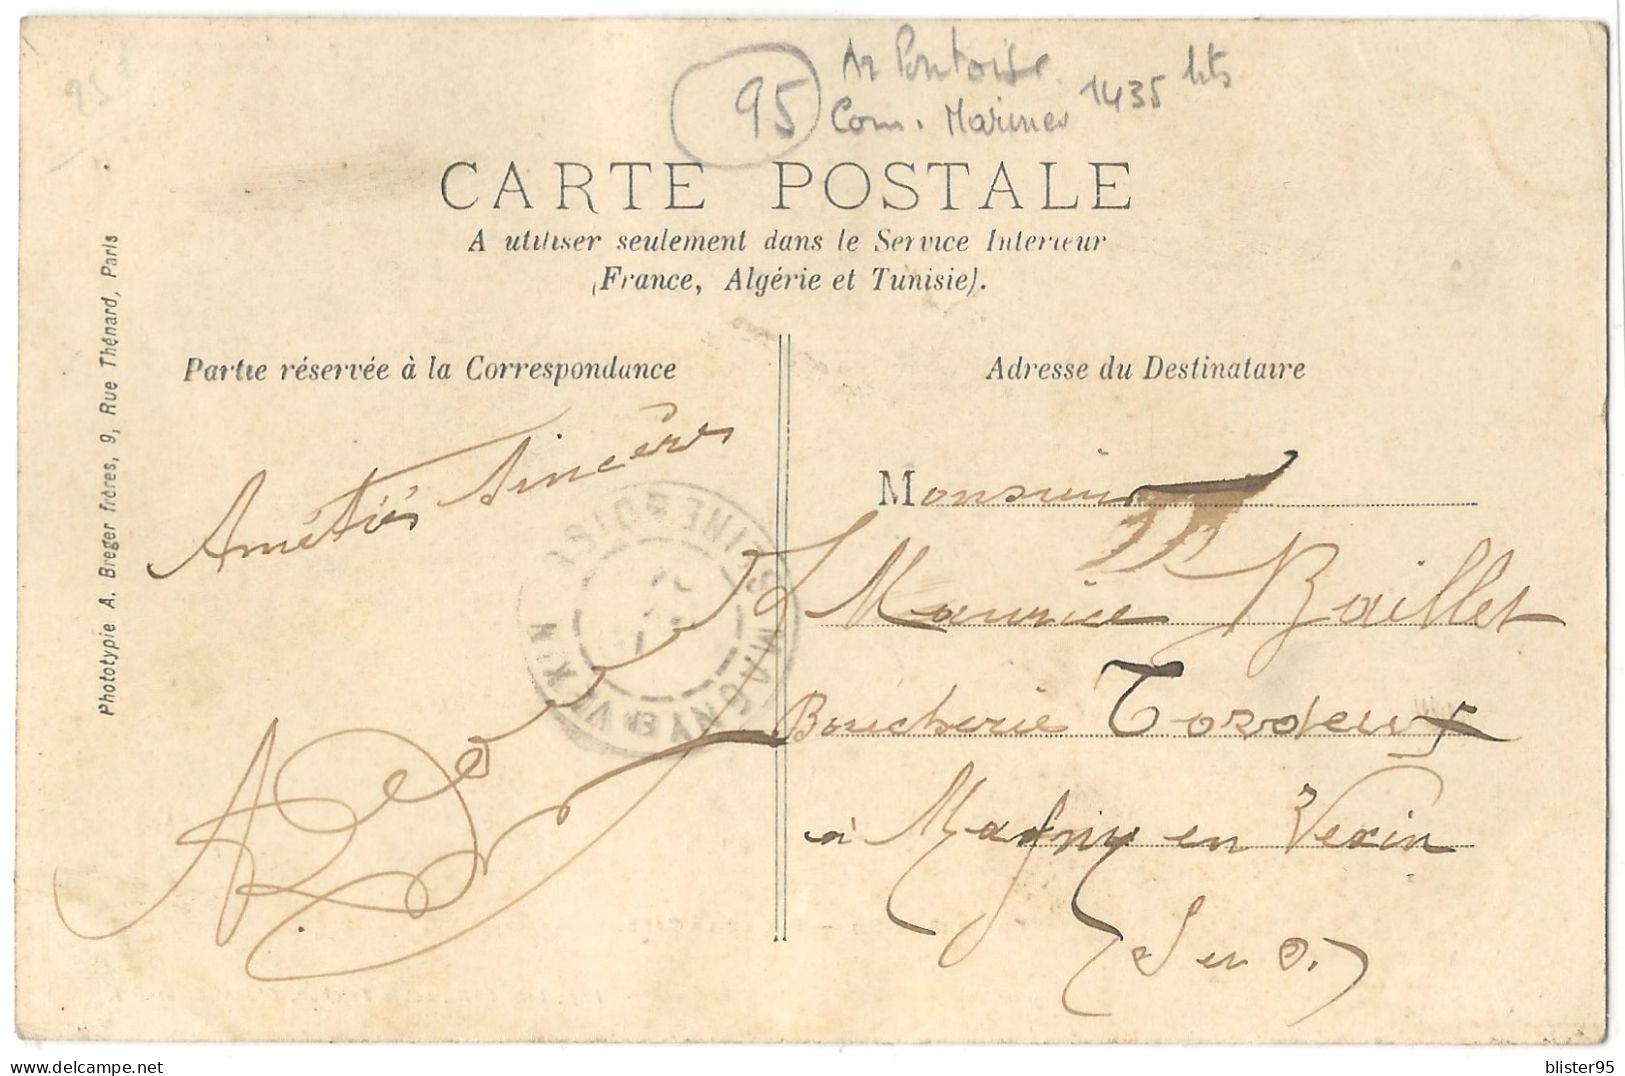 95
Ar Pontoise
Com. Marines 1435 hts
95
CARTE POSTALE
A utiliser seulement dans le Service Intérieur
(France, Algérie et Tunisie).
Partie réservée à la Correspondance
Adresse du Destinataire
Phototypie A. Breger frères, 9, Rue Thénard, Paris
Amétiés Sincères
Monsieur
Maurice Baillet
Boucherie Tordeux
à Magny en Vexin
(S et O.)
MAGNY EN VEXIN
SEINE & OISE
blister95